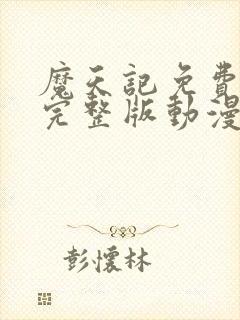 魔天記免費
完整版動漫
彭懷林